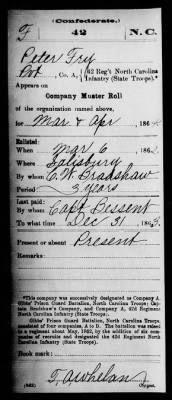 (Confederate.)
F 42 N.C.
Peter Fry
Pvt, Co. A, 42 Reg't North Carolina Infantry (State Troops).*
Appears on
Company Muster Roll
of the organization named above,
for Mar & Apr, 1864.
Enlisted:
When Mar 6, 1862.
Where Salisbury
By whom C. W. Bradshaw
Period 3 years
Last paid:
By whom Capt Bessent
To what time Dec 31, 1863.
Present or absent Present
Remarks:
*This company was successively designated as Company A, Gibbs' Prison Guard Battalion, North Carolina Troops; Captain Bradshaw's Company, and Company A, 42d Regiment North Carolina Infantry (State Troops).
Gibbs' Prison Guard Battalion, North Carolina Troops, consisted of four companies, A to D. The battalion was raised to a regiment about May, 1862, by the addition of six companies of recruits and designated the 42d Regiment North Carolina Infantry (State Troops).
Book mark:
(642) Copyist.